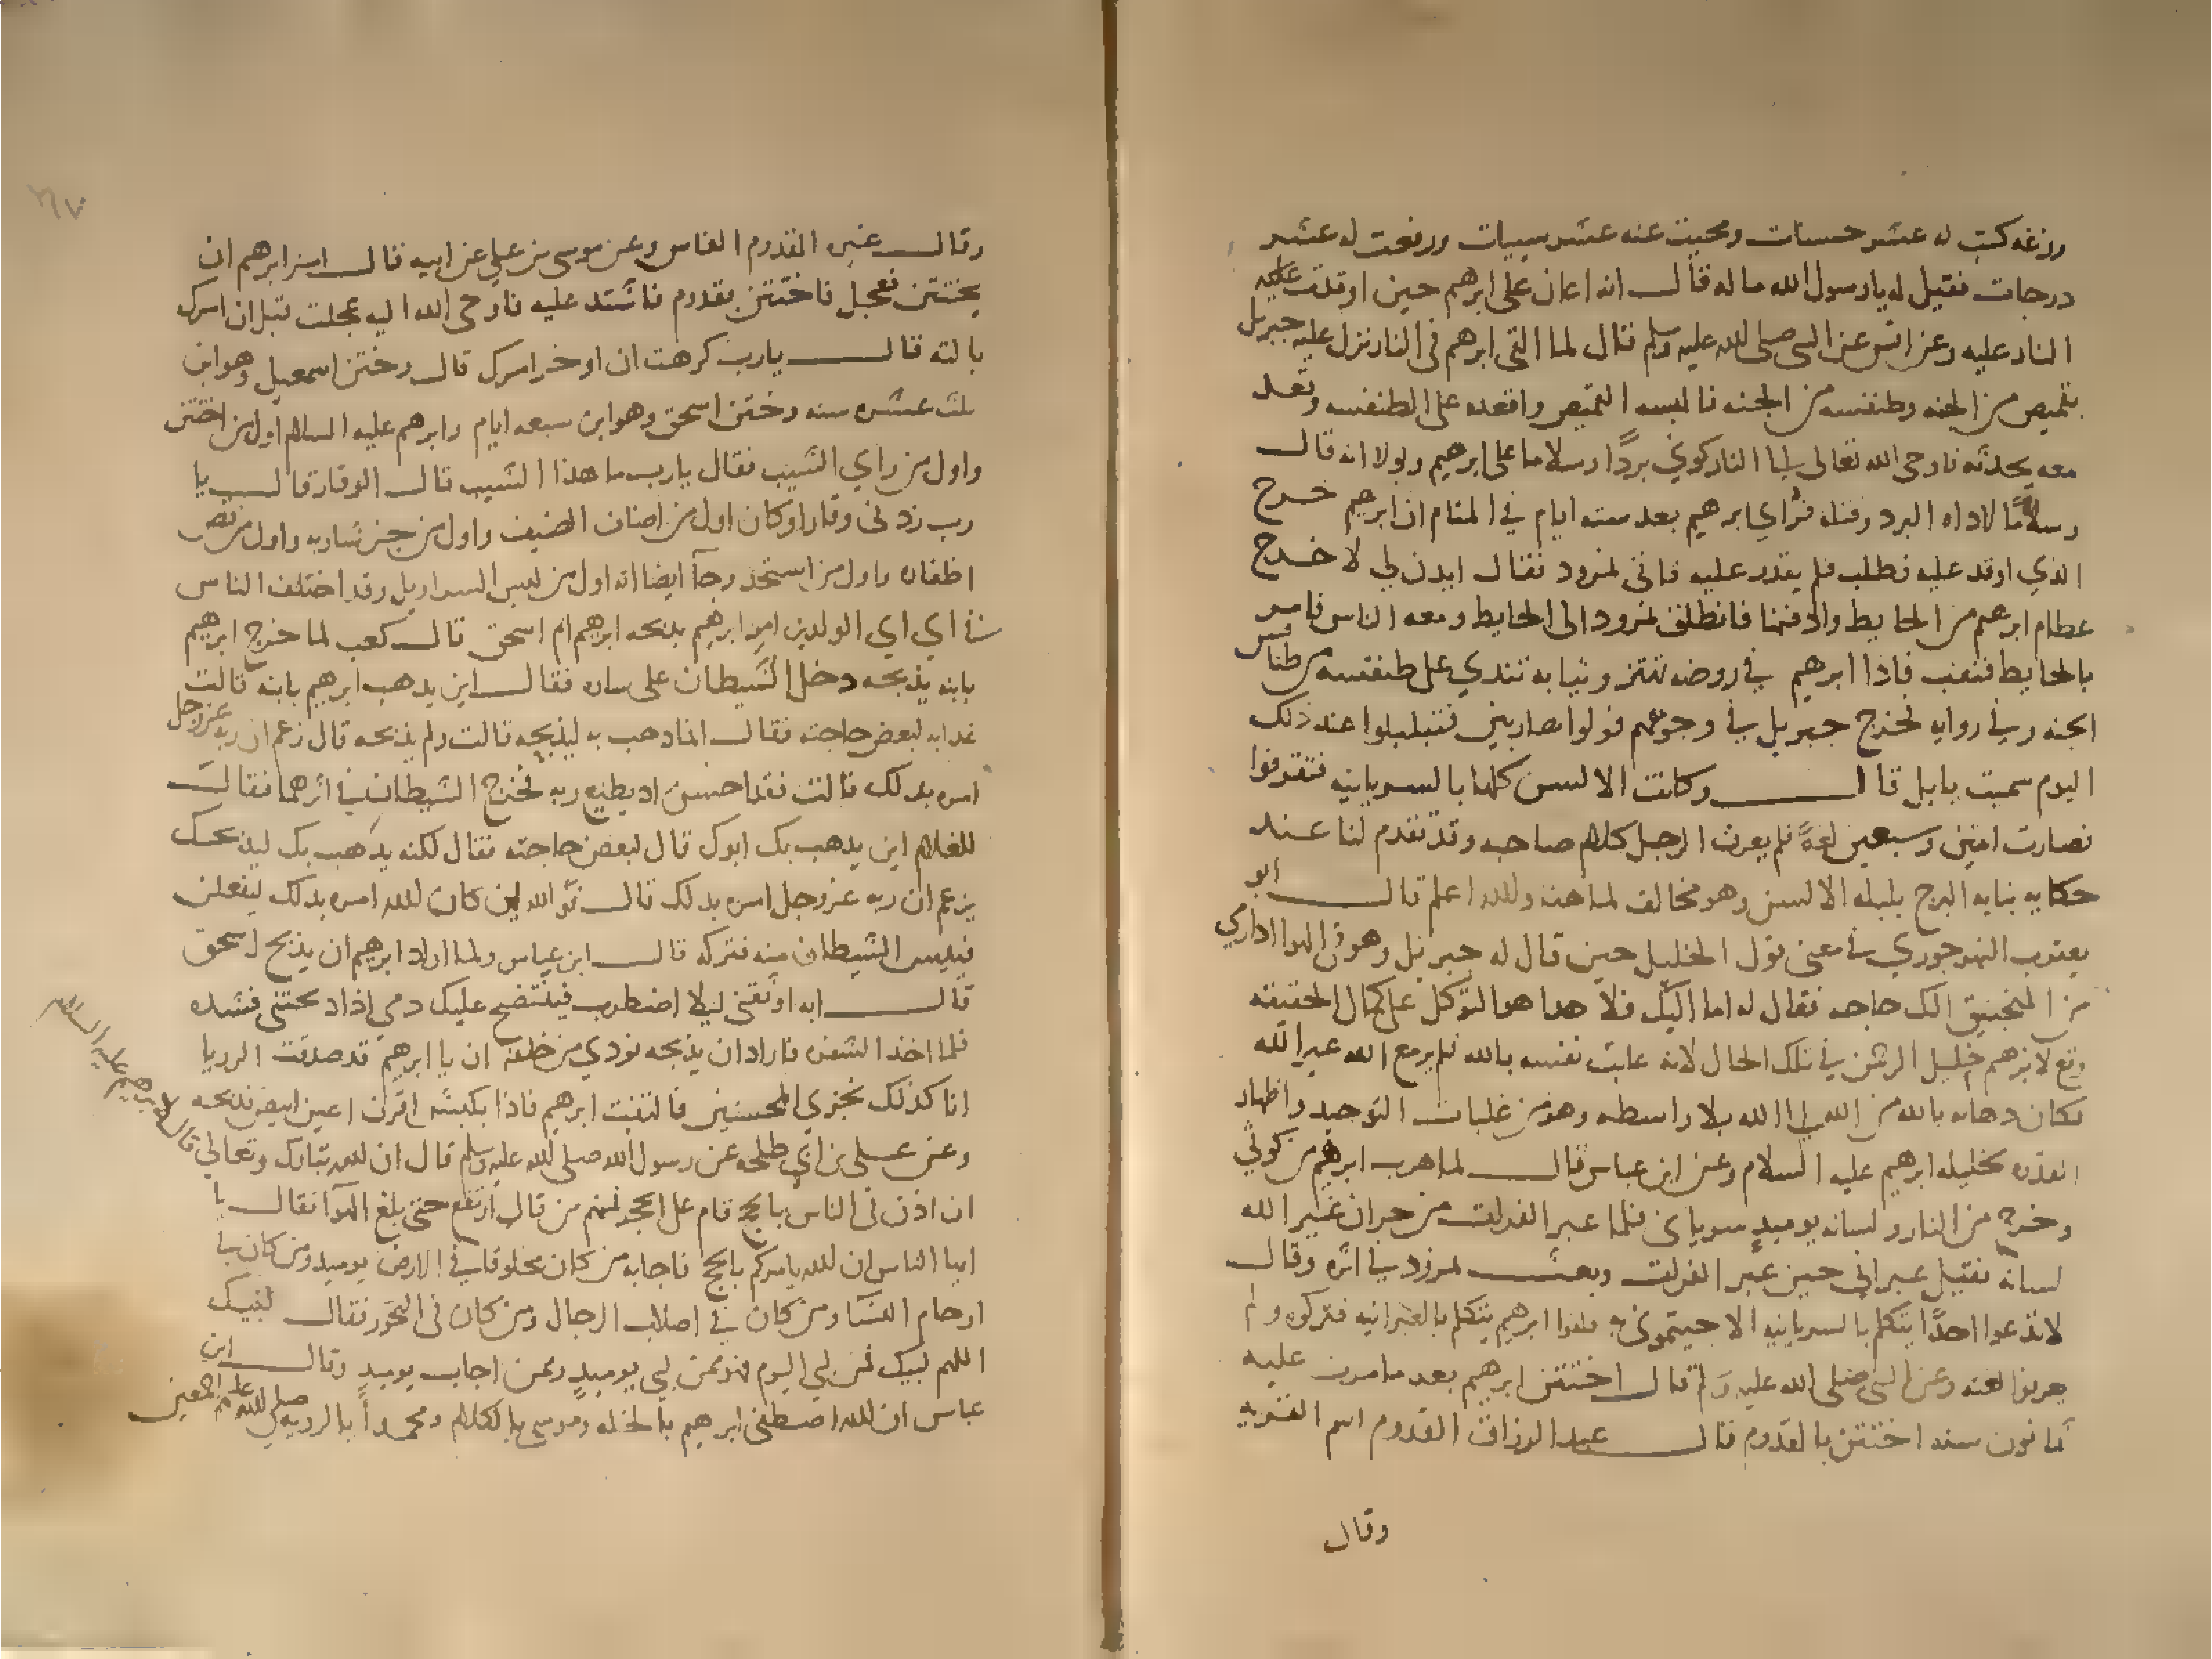 وزغه كتب له عشر حسنات ومحيت عنه عشر سييات ورفعت له عشر
درجات فقيل له يا رسول الله ما له قال انه اعان على ابرهم حين اوقدت عليه
النار عليه وعن انس عن النبي صلى الله عليه وسلم قال لما القي ابرهم في النار نزل عليه جبريل
بقميص من الجنه وطنفسه من الجنه فالبسه القميص واقعده على الطنفسه وقعد
معه يحدثه فاوحى الله تعالى الى النار كوني بردًا وسلاما على ابرهيم ولولا انه قال
وسلامًا لاداه البرد وقتله فراي ابرهيم بعد سته ايام في المنام ان ابرهيم خرج
الذي اوقد عليه فطلب فلم يقدر عليه فاتى نمرود فقال ايدن لي لاخرج
عظام ابرهيم من الحايط وادفنها فانطلق نمرود الى الحايط ومعه الناس فامر
بالحايط فنقب فاذا ابرهيم في روضه تهتز وثيابه تندي على طنفسه من طنافس
الجنه وفي روايه فخرج جبريل في وجوههم فولوا هاربين فتبلبلوا عند ذلك
اليوم سميت بابل قال وكانت الالسن كلها بالسريانيه فتفرقوا
فصارت اثنين وسبعين لغةً فلم يعرف الرجل كلام صاحبه وقد تقدم لنا عند
حكايه بنايه البرج بلبله الالسن وهو مخالف لما هنا والله اعلم قال ابو
يعقوب النهرجوري في معنى قول الخليل حين قال له جبريل وهو في الهوا
من المنجنيق الك حاجه فقال له اما اليك فلا هدا هو التوكل على كمال الحقيقه
وقع لابرهم خليل الرحمن في تلك الحال لانه غابت نفسه بالله فلم ير مع الله غير الله
فكان دهابه بالله من الله الى الله بلا واسطه وهو من غلبات التوحيد واظهار
القدره لخليله ابرهيم عليه السلام وعن ابن عباس قال لما هرب ابرهيم من كوثي
وخرج من النار ولسانه يوميدٍ سرياني فلما عبر الفرات من حران غير الله
لسانه فقيل عبراني حين عبر الفرات وبعث نمرود في اثره وقال
لا تدعوا احدًا يتكلم بالسريانيه الا جيتموني به فلقوا ابرهيم يتكلم بالعبرانيه فتركوه ولم
يعرفوا لغته وعن النبي صلى الله عليه وسلم قال اختتن ابرهيم بعد ما مرت عليه
ثمانون سنه اختتن بالقدوم قال عبد الرزاق القدوم اسم القريه
وقال
وقال غيره القدوم الفاس وعن موسى بن علي عن ابيه قال امر ابرهيم ان
يختتن فعجل فاختتن بقدوم فاشتد عليه فاوحى الله اليه عجلت قبل ان امرك
بالته قال يا رب كرهت ان اوخر امرك قال وختن اسمعيل وهو ابن
ثلث عشره سنه وختن اسحق وهو ابن سبعه ايام وابرهم عليه السلام اول من اختتن
واول من راي الشيب فقال يا رب ما هذا الشيب قال الوقار قال يا
رب زدني وقارا وكان اول من اضاف الضيف واول من جز شاربه واول من قص
اظفاره واول من استحد وجآ ايضا انه اول من لبس السراويل وقد اختلف الناس
في اي الولدين امر ابرهيم بذبحه ابرهيم ام اسحق قال كعب لما خرج ابرهيم
بابنه يذبحه دخل الشيطان على ساره فقال اين يدهب ابرهيم بابنه قالت
غدا به لبعض حاجته فقال انما دهب به ليذبحه قالت ولم يذبحه قال زعم ان ربه عز وجل
امره بدلك قالت فقد احسن ان يطيع ربه فخرج الشيطان في اثرهما فقال
للغلام اين يدهب بك ابوك قال لبعض حاجته فقال لكنه يدهب بك ليذبحك
يزعم ان ربه عز وجل امره بدلك قال فوالله لين كان الله امره بدلك ليفعلن
فييس الشيطان منه فتركه قال ابن عباس ولما اراد ابرهيم ان يذبح اسحق
قال ابه اوثقني ليلا اضطرب فينتضح عليك دمي اذا دبحتني فشده
فلما اخذ الشفره فاراد ان يذبحه نودي من خلفه ان يا ابرهيم قد صدقت الرويا
انا كذلك نجزي المحسنين فالتفت ابرهيم فاذا بكبش اقرن اعين ابيض فذبحه
وعن علي بن ابي طلحه عن رسول الله صلى الله عليه وسلم قال ان الله تبارك وتعالى قال لابرهيم عليه السلام
ان اذن في الناس بالحج فقام على الحجر فمنهم من قال ارتفع حتى بلغ الهوآ فقال يا
ايها الناس ان الله يامركم بالحج فاجابه من كان مخلوقا في الارض يوميد ومن كان في
ارحام النسآ ومن كان في اصلاب الرجال ومن كان في البحور فقال لبيك
اللهم لبيك فمن لبى اليوم فهو ممن لبى يوميدٍ وممن اجاب يوميدٍ وقال ابن
عباس ان الله اصطفى ابرهيم بالخله وموسى بالكلام ومحمداً بالرويه صلى الله عليهم اجمعين